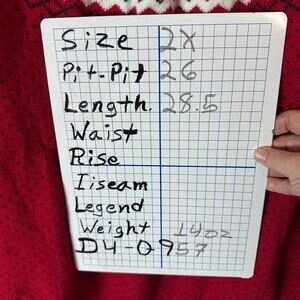 Size 2X
Pit-Pit 26
Length. 28.5
Waist
Rise
Iiseam
Legend
Weight 14oz
D4-0957